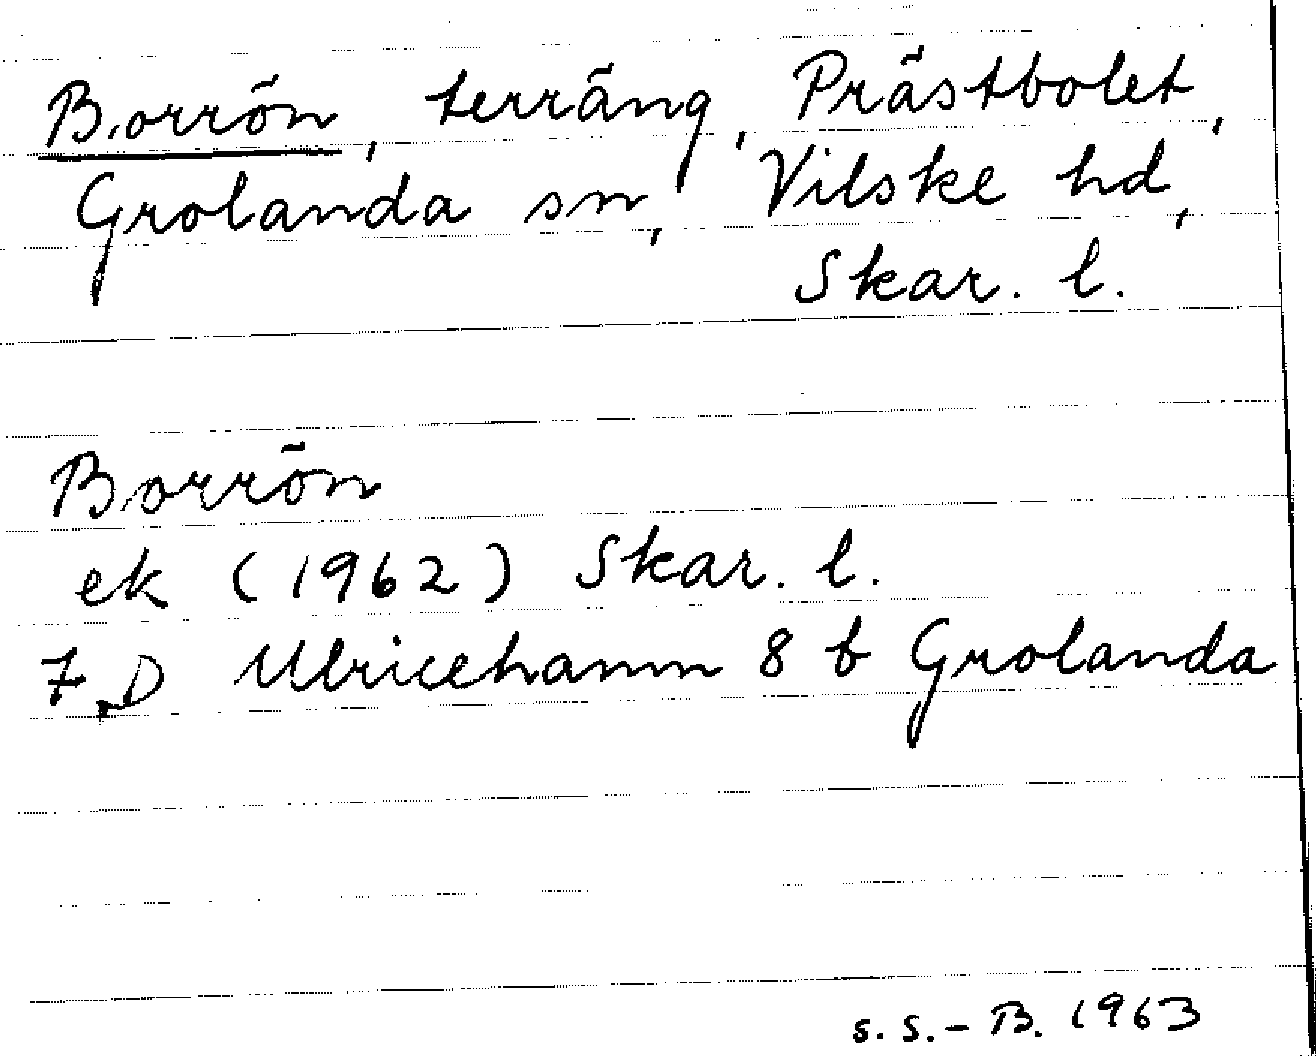 Borrön, terräng, Prästbolet,
Grolanda sn, Vilske hd,
Skar. l.
Borrön
ek (1962) Skar. l.
7 D Ulricehamn 8 b Grolanda
S. S. - B. 1963